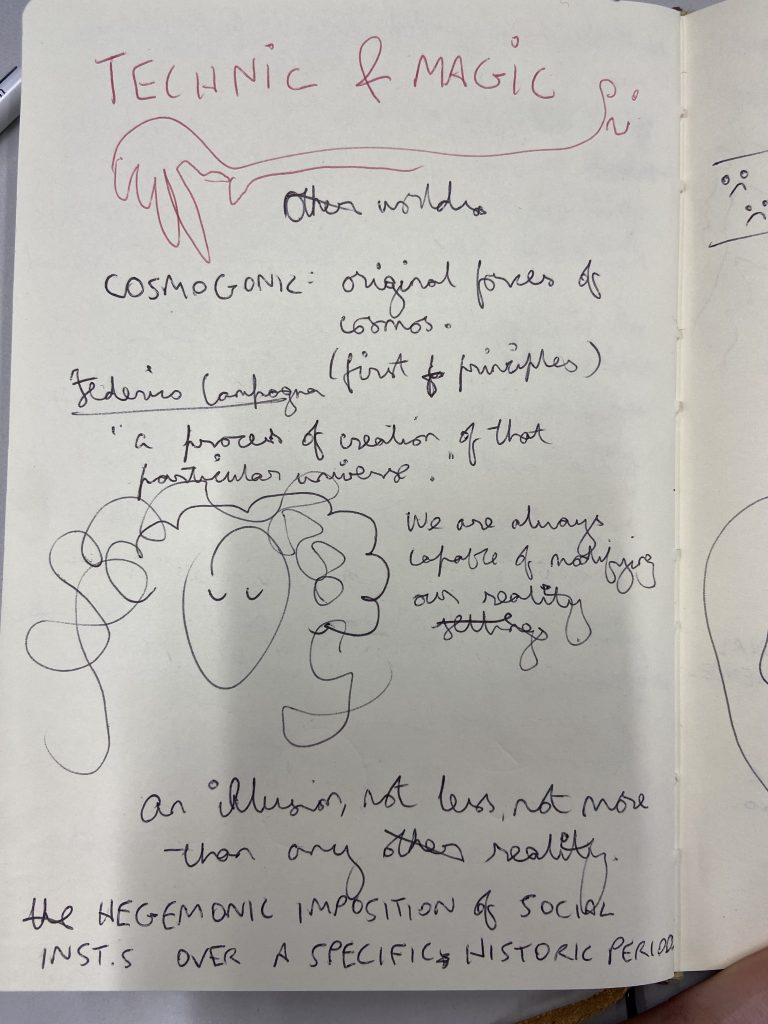 TECHNIC & MAGIC
Other worlds
COSMOGONIC: original forces of
cosmos.
(first principles)
Federico Campagna
"a process of creation of that
particular universe."
We are always
capable of modifying
our reality
settings.
an illusion, not less, not more
than any other reality.
the HEGEMONIC IMPOSITION of SOCIAL
INST.S OVER A SPECIFIC HISTORIC PERIOD